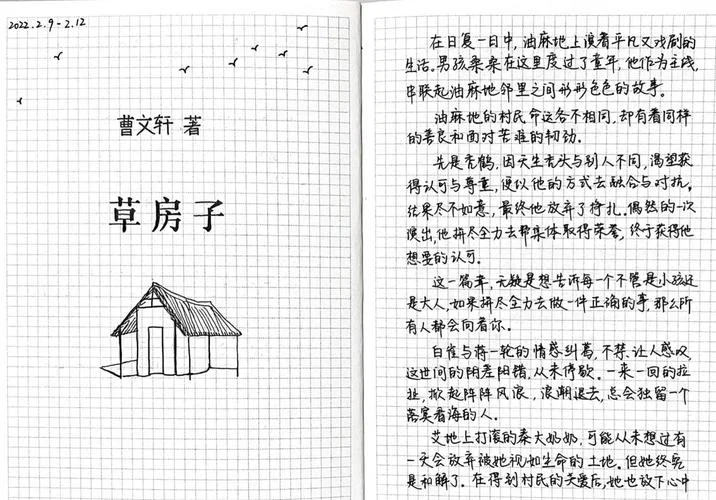 2022.2.9-2.12
曹文轩 著
草房子
在日复一日中,油麻地上演着平凡又戏剧的
生活。男孩桑桑在这里度过了童年,他作为主线,
串联起油麻地邻里之间形形色色的故事。
油麻地的村民命运各不相同,却有着同样
的善良和面对苦难的韧劲。
先是秃鹤,因天生秃头与别人不同,渴望获
得认可与尊重,便以他的方式去融合与对抗。
结果尽不如意,最终他放弃了挣扎。偶然的一次
演出,他拼尽全力去帮集体取得荣誉,终于获得他
想要的认可。
这一篇章,无疑是想告诉每一个不管是小孩还
是大人,如果拼尽全力去做一件正确的事,那么所
有人都会向着你。
白雀与蒋一轮的情感纠葛,不禁让人感叹,
这世间的阴差阳错,从未停歇。一来一回的拉
扯,掀起阵阵风浪,浪潮退去,总会独留一个
落寞看海的人。
艾地上打滚的秦大奶奶,可能从未想过有
一天会放弃被她视如生命的土地。但她终究
是和解了。在得到村民的关爱后,她也放下心中